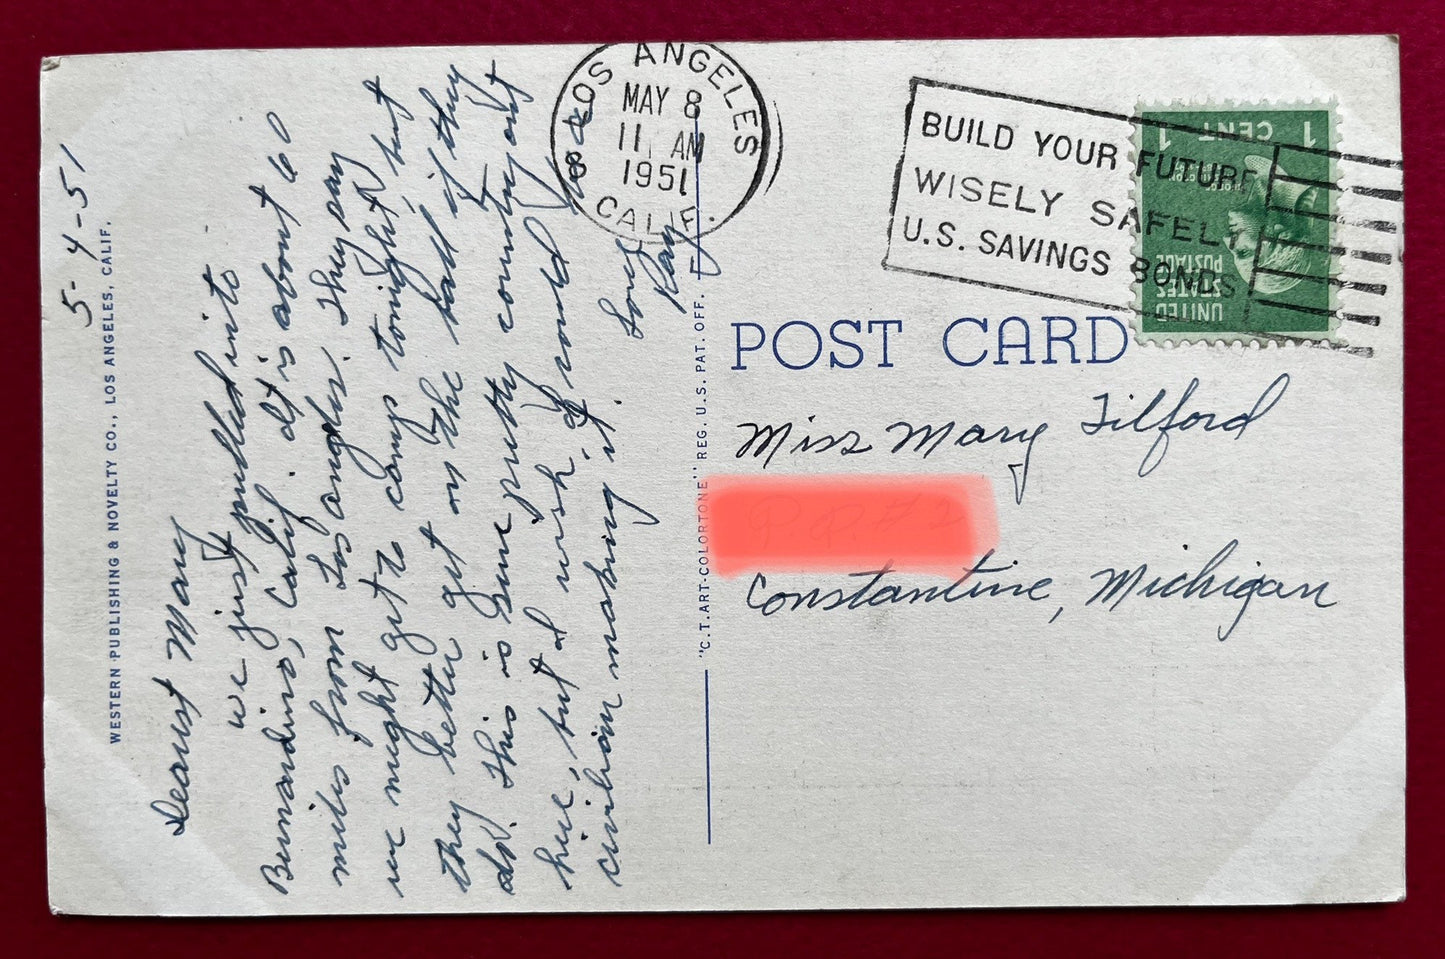 5-4-51
WESTERN PUBLISHING & NOVELTY CO., LOS ANGELES, CALIF.
Dearest Mary
we just pulled into
Bernardino, Calif. It is about 60
miles from Los angles. They say
we might get to camp tonight, but
they better get on the ball if they
do. This is some pretty country out
here, but I wish I would
civilian making it.
Love
Ray
"C.T. ART-COLORTONE" REG. U.S. PAT. OFF.
LOS ANGELES
MAY 8
11 AM
1951
CALIF.
BUILD YOUR FUTURE
WISELY SAFELY
U.S. SAVINGS BONDS
1 CENT 1
UNITED
STATES
POSTAGE
POST CARD
Miss Mary Tilford
Constantine, Michigan